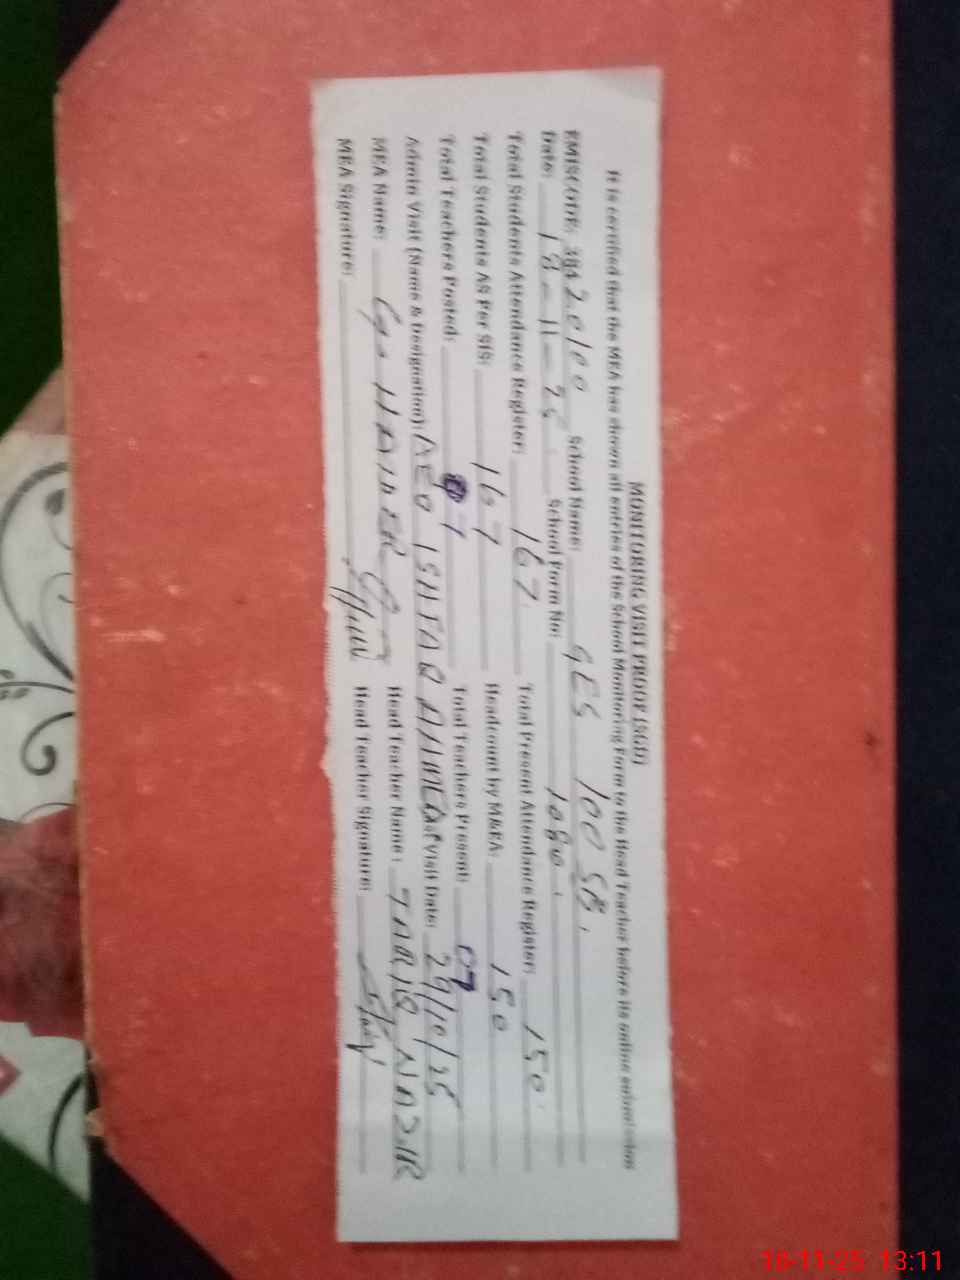 MONITORING VISIT PROOF (SGD)
It is certified that the MEA has shown all entries of the School Monitoring Form to the Head Teacher before its online submission
EMISCODE: 38420100 School Name: GES 100 SB.
Date: 18-11-25. School Form No: 1080.
Total Students Attendance Register: 167. Total Present Attendance Register: 150.
Total Students AS Per SIS: 167 Headcount by M&EA: 150
Total Teachers Posted: 7 Total Teachers Present: 07
Admin Visit (Name & Designation): AEO ISHFAQ AHMED of Visit Date: 29/10/25
MEA Name: HAIDER Head Teacher Name: TARIQ NAZIR
MEA Signature: Head Teacher Signature:
18-11-25 13:11